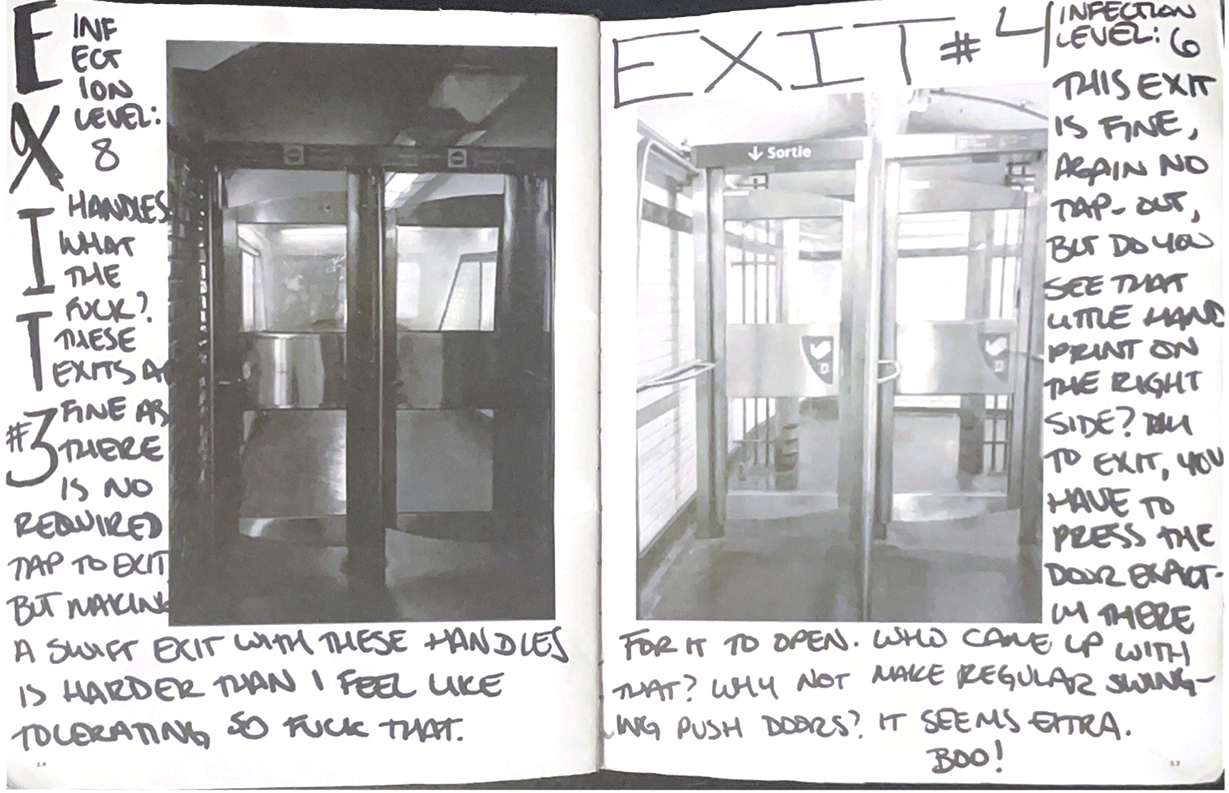 EXIT #3
INF
ECT
ION
LEVEL:
8
HANDLES
WHAT
THE
FUCK?
THESE
EXITS AR
FINE AS
THERE
IS NO
REQUIRED
TAP TO EXIT
BUT MAKING
A SWIFT EXIT WITH THESE HANDLES
IS HARDER THAN I FEEL LIKE
TOLERATING, SO FUCK THAT.
EXIT #4
INFECTION
LEVEL: 6
↓ Sortie
THIS EXIT
IS FINE,
AGAIN NO
TAP-OUT,
BUT DO YOU
SEE THAT
LITTLE HAND
PRINT ON
THE RIGHT
SIDE?
TO EXIT, YOU
HAVE TO
PRESS THE
DOOR EXACT-
LY THERE
FOR IT TO OPEN. WHO CAME UP WITH
THAT? WHY NOT MAKE REGULAR SWING-
ING PUSH DOORS? IT SEEMS EXTRA.
BOO!